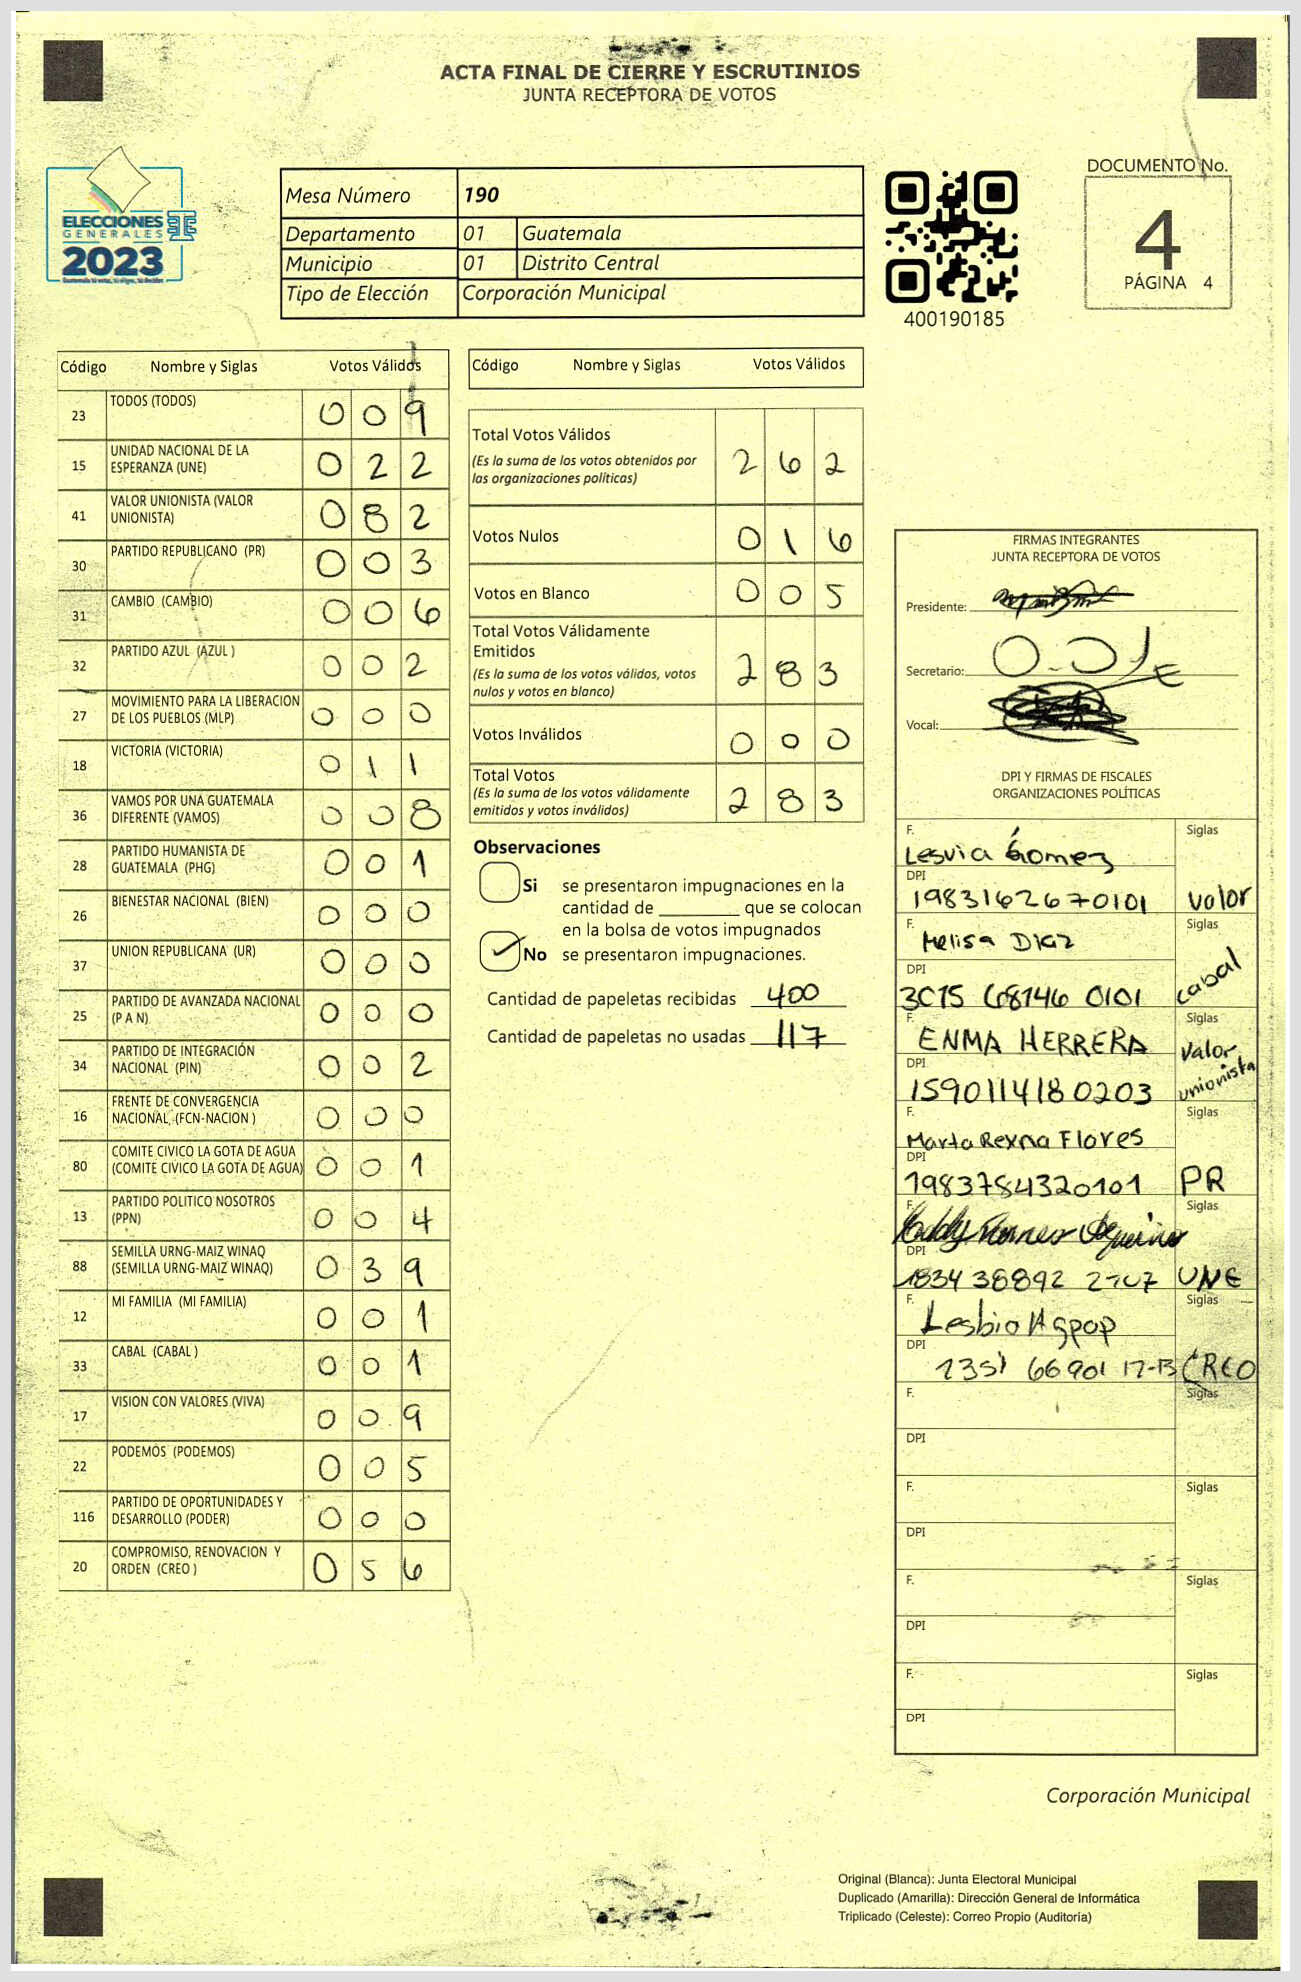 ACTA FINAL DE CIERRE Y ESCRUTINIOS
JUNTA RECEPTORA DE VOTOS
ELECCIONES
GENERALES
2023
Mesa Número 190
Departamento 01 Guatemala
Municipio 01 Distrito Central
Tipo de Elección Corporación Municipal
400190185
DOCUMENTO No.
4
PÁGINA 4
Código Nombre y Siglas Votos Válidos
23 TODOS (TODOS) 0 0 9
15 UNIDAD NACIONAL DE LA ESPERANZA (UNE) 0 2 2
41 VALOR UNIONISTA (VALOR UNIONISTA) 0 8 2
30 PARTIDO REPUBLICANO (PR) 0 0 3
31 CAMBIO (CAMBIO) 0 0 6
32 PARTIDO AZUL (AZUL ) 0 0 2
27 MOVIMIENTO PARA LA LIBERACION DE LOS PUEBLOS (MLP) 0 0 0
18 VICTORIA (VICTORIA) 0 1 1
36 VAMOS POR UNA GUATEMALA DIFERENTE (VAMOS) 0 0 8
28 PARTIDO HUMANISTA DE GUATEMALA (PHG) 0 0 1
26 BIENESTAR NACIONAL (BIEN) 0 0 0
37 UNION REPUBLICANA (UR) 0 0 0
25 PARTIDO DE AVANZADA NACIONAL (P A N) 0 0 0
34 PARTIDO DE INTEGRACIÓN NACIONAL (PIN) 0 0 2
16 FRENTE DE CONVERGENCIA NACIONAL (FCN-NACION ) 0 0 0
80 COMITE CIVICO LA GOTA DE AGUA (COMITE CIVICO LA GOTA DE AGUA) 0 0 1
13 PARTIDO POLITICO NOSOTROS (PPN) 0 0 4
88 SEMILLA URNG-MAIZ WINAQ (SEMILLA URNG-MAIZ WINAQ) 0 3 9
12 MI FAMILIA (MI FAMILIA) 0 0 1
33 CABAL (CABAL ) 0 0 1
17 VISION CON VALORES (VIVA) 0 0 9
22 PODEMOS (PODEMOS) 0 0 5
116 PARTIDO DE OPORTUNIDADES Y DESARROLLO (PODER) 0 0 0
20 COMPROMISO, RENOVACION Y ORDEN (CREO ) 0 5 6
Código Nombre y Siglas Votos Válidos
Total Votos Válidos 2 6 2
(Es la suma de los votos obtenidos por
las organizaciones políticas)
Votos Nulos 0 1 6
Votos en Blanco 0 0 5
Total Votos Válidamente
Emitidos 2 8 3
(Es la suma de los votos válidos, votos
nulos y votos en blanco)
Votos Inválidos 0 0 0
Total Votos 2 8 3
(Es la suma de los votos válidamente
emitidos y votos inválidos)
Observaciones
Si se presentaron impugnaciones en la
cantidad de ________ que se colocan
en la bolsa de votos impugnados
No se presentaron impugnaciones.
Cantidad de papeletas recibidas 400
Cantidad de papeletas no usadas 117
FIRMAS INTEGRANTES
JUNTA RECEPTORA DE VOTOS
Presidente:
Secretario:
Vocal:
DPI Y FIRMAS DE FISCALES
ORGANIZACIONES POLÍTICAS
F. Lesvia Gómez Siglas
DPI 1983162670101 Valor
F. Melisa Diaz Siglas
DPI 3015 68146 0101 cabal
F. ENMA HERRERA Siglas
DPI 1590114180203 Valor unionista
F. Marta Reyna Flores Siglas
DPI 1983784320101 PR
F. Siglas
DPI 1834 38892 UNE
F. Lesbia Siglas
DPI CREO
F. Siglas
DPI
F. Siglas
DPI
F. Siglas
DPI
F. Siglas
DPI
Corporación Municipal
Original (Blanca): Junta Electoral Municipal
Duplicado (Amarilla): Dirección General de Informática
Triplicado (Celeste): Correo Propio (Auditoría)